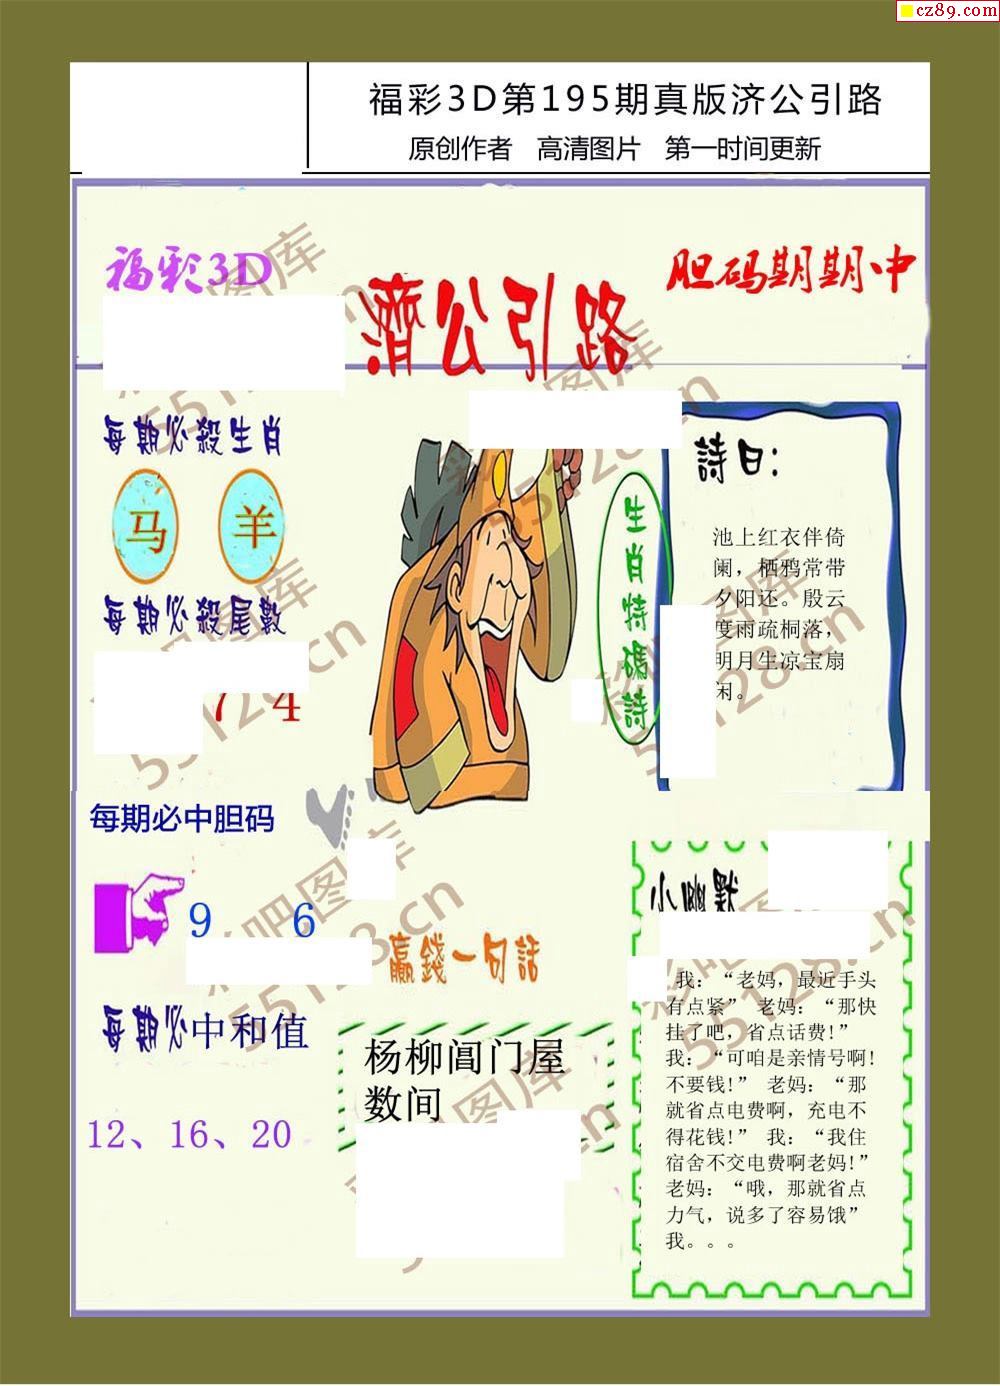 cz89.com
福彩3D第195期真版济公引路
原创作者 高清图片 第一时间更新
福彩3D
胆码期期中
濟公引路
每期必殺生肖
马 羊
每期必殺尾數
7 4
生肖特碼詩
詩曰：
池上红衣伴倚
阑，栖鸦常带
夕阳还。殷云
度雨疏桐落，
明月生凉宝扇
闲。
每期必中胆码
9 6
每期必中和值
12、16、20
贏錢一句話
杨柳阊门屋
数间
小幽默
我：“老妈，最近手头
有点紧” 老妈：“那快
挂了吧，省点话费!”
我：“可咱是亲情号啊!
不要钱!” 老妈：“那
就省点电费啊，充电不
得花钱!” 我：“我住
宿舍不交电费啊老妈!”
老妈：“哦，那就省点
力气，说多了容易饿”
我。。。
彩吧图库
55128.cn